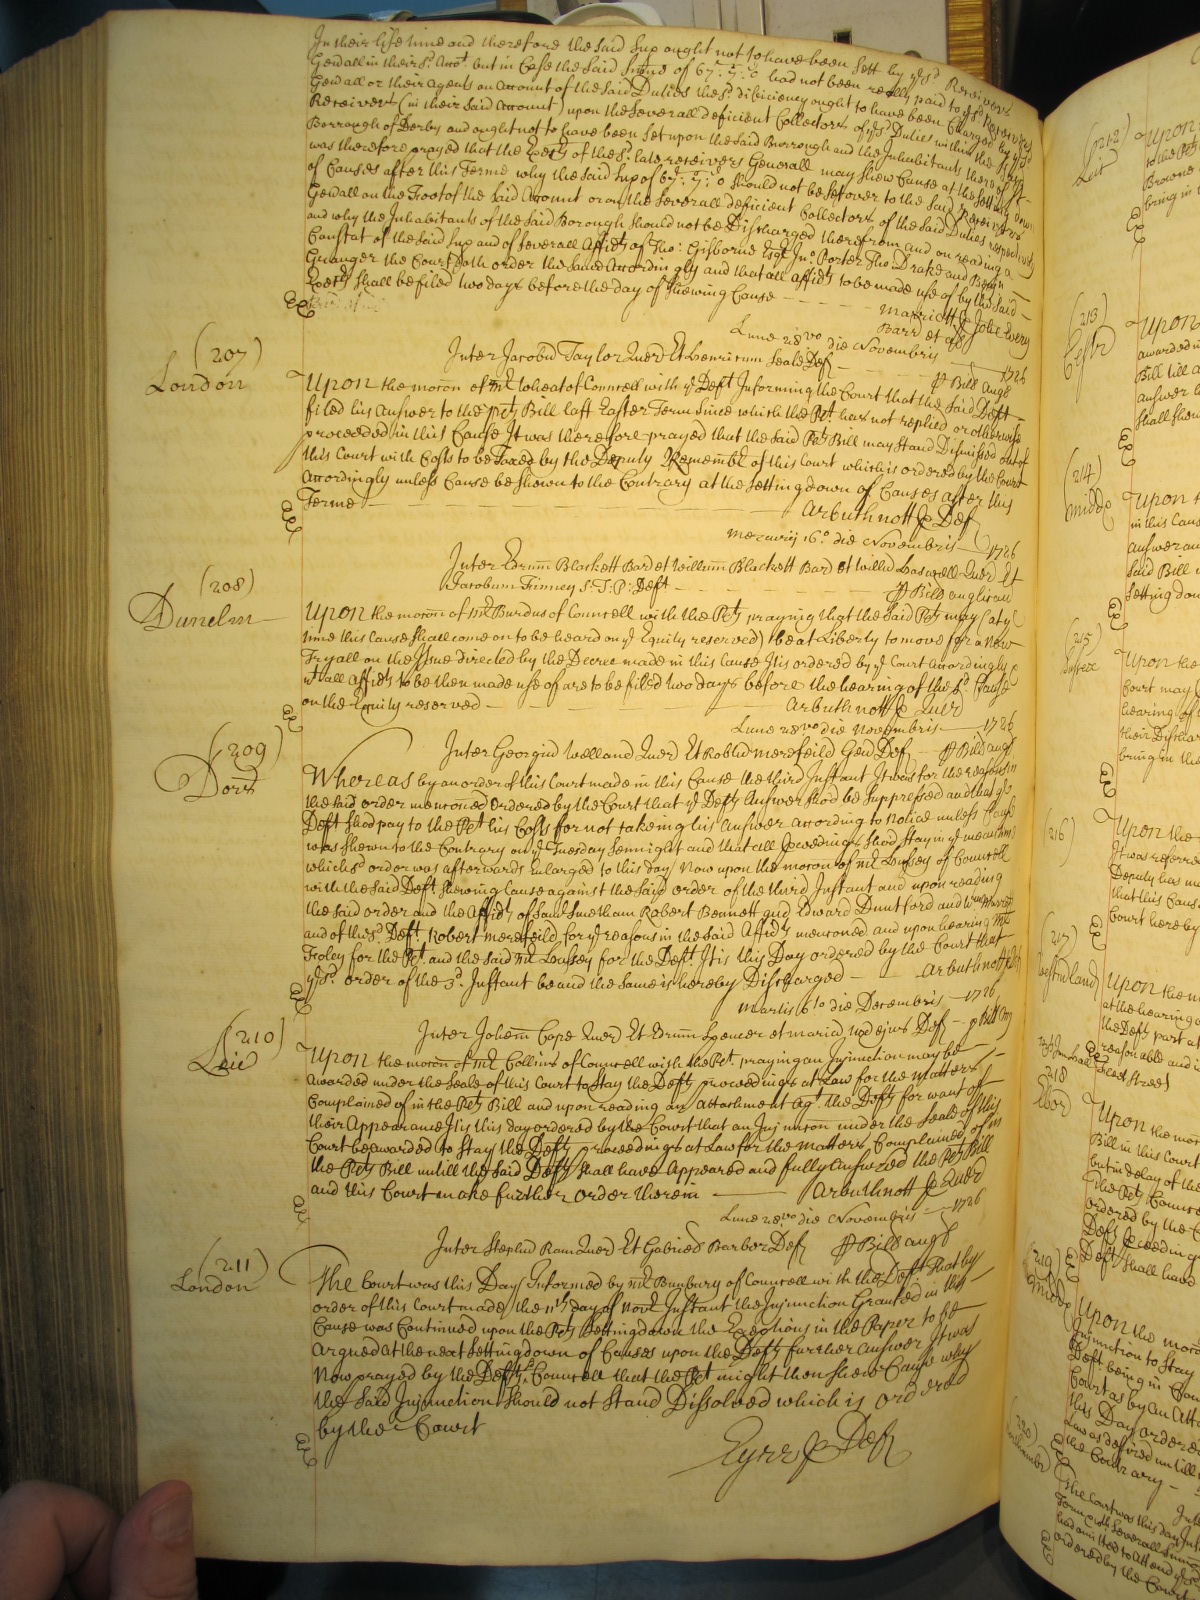 In their life time and therefore the said Sup ought not to have been Sett by ye sd Receivers
Gen̄all in their sd. Accot. but in Case the said Sume of 67: 7: 0 had not been really paid to ye sd Receivers
Gen̄all or their Agents on Account of the said Duties the sd. dificiency ought to have been Charged by ye sd
Receivers (in their said Account) upon the Severall deficient Collectors of ye sd Duties within the said
Borrough of Derby and ought not to have been Set upon the said Burrough and the Inhabitants thereof It
was therefore prayed that the Pets of the sd. late receivers Generall may shew Cause at the Setting down
of Causes after this Terme why the said Sup of 67: 7: 0 should not be set over to the said Receivers
Gen̄all on the Foot of the said Account or on the Severall deficient Collectors of the said Duties respectively
and why the Inhabitants of the said Borough should not be Discharged therefrom and on reading a
Constat of the said Sup and of Severall Affidts of Tho: Gisborne Esqr Jno. Porter Tho Drake and Benjn
Granger the Court doth order the same Accordingly and that all affidts to be made use of by the said
Exets shall be filed two days before the day of shewing Cause
Marriott p Johe Every
Barr et al
Lune 28vo die Novembris 1726
(207)
London
Inter Jacobū Taylor Quer Et Henricum Seale Def p Bill Angl
Upon the mocon of Mr Wheat of Councell with ye Deft Informing the Court that the said Deft
filed his Answer to the Pets Bill last Easter Term Since which the Pet. has not replied or otherwise
proceeded in this Cause It was therefore prayed that the said Pets Bill may stand Dismissed out of
this Court with Costs to be Taxed by the Deputy Remembr of this Court which is ordered by the Court
Accordingly unless Cause be shewn to the Contrary at the Setting down of Causes after this
Terme Arbuthnott p Def
Ex
Mercurij 16o die Novembris 1726
(208)
Dunelm
Inter Edrum Blackett Bar et Willum Blackett Bar et Willū Quer Et
Jacobum Finney S: T: P: Deft p Bill anglican
Upon the mocon of Mr Burdus of Councell with the Pets praying that the said Pets may (at ye
time this Cause shall come on to be heard on ye Equity reserved) be at Liberty to move for a New
Tryall on the Issue directed by the Decree made in this Cause It is ordered by ye Court Accordingly &
yt all Affidts to be then made use of are to be filed two days before the hearing of the sd Cause
on the Equity reserved Arbuthnott p Quer
Ex
Lune 28vo die Novembris 1726
(209)
Dors
Inter Georgiū Welland Quer Et Robtū Merefeild Gen Def p Bill angl
Whereas by an order of this Court made in this Cause the third Instant It was for the reasons in
the said order menconed Ordered by the Court that ye Defts Answer shod be Suppressed and that ye
Deft shod pay to the Pet his Costs for not takeing his Answer according to Notice unless Cause
was shewn to the Contrary on ye Tuesday Sennight and that all pceedings shod stay in ye mean time
which sd order was afterwards Enlarged to this day Now upon the mocon of Mr of Councell
with the said Deft shewing Cause against the said order of the third Instant and upon reading
the said order and the Affidts of Saml Smetham Robert Bennett and Edward Duntford and
and of the sd. Deft. Robert Merefeild for ye reasons in the said Affidts menconed and upon hearing Mr
Foley for the Pet. and the said Mr for the Deft. It is this Day ordered by the Court that
ye sd. order of the 3d. Instant be and the same is hereby Discharged Arbuthnott p Def
Ex
Martis 6to die Decembris 1726
(210)
Leic
Inter Johem Cope Quer Et Edrum Spencer et Mariā Uxō ejus Def p Bill Ang
Upon the mocon of Mr Collins of Councell with the Pet. praying an Injunction may be
awarded under the Seale of this Court to stay the Defts proceedings at Law for the matters
Complained of in the Pets Bill and upon reading an Attachment agt. the Defts for want of
their Appearance It is this day ordered by the Court that an Injunccon under the Seale of this
Court be awarded to Stay the Defts proceedings at Law for the matters Complained of in
the Pets Bill untill the said Defts shall have Appeared and fully answered the Pets Bill
and this Court make further order therein Arbuthnott p Quer
Ex
Lune 28vo die Novembris 1726
(211)
London
Inter Stephū Ram Quer Et Gabriel Barbor Def p Bill angl
The Court was this Day Informed by Mr Bunbury of Councell with the Deft that by
order of this Court made the 11th day of Novr Instant the Injunction Granted in this
Cause was Continued upon the Pets Setting down the Exeptions in the Paper to be
Argued at the next Setting down of Causes upon the Defts further Answer It was
Now prayed by the Defts Councell that the Pet might then shew Cause why
the said Injunction should not stand Dissolved which is ordered
by the Court
Ex
Eyre p Def
(212)
Leic
Upon
to the Pets
Browne
bring in
Ex
(213)
Upon
awarded
Bill till a
answer
shall shew
Ex
(214)
Middx
Upon t
in this Cau
answer an
said Bill
Setting dow
Ex
215
Sussex
Upon the
Court may
hearing of
their Discha
bring in the
Ex
216
Upon the
It was referre
Deputy has m
that this Caus
Court hereby
Ex
(217)
Upon the m
at the hearing
the Defts part at
reasonable and
218
Upon the moc
Bill in this Court
but in delay of the
the Pets Counce
ordered by the C
Defts pceeding
Deft shall have
Ex
(219)
Middx
Upon the moc
Injunction to Stay
Deft being in Con
Court as by an Atta
this Day ordered
Law as desired untill
the Contrary
(220)
The Court was this day Inf
had omitted to Attend
ordered by the Court
Ex